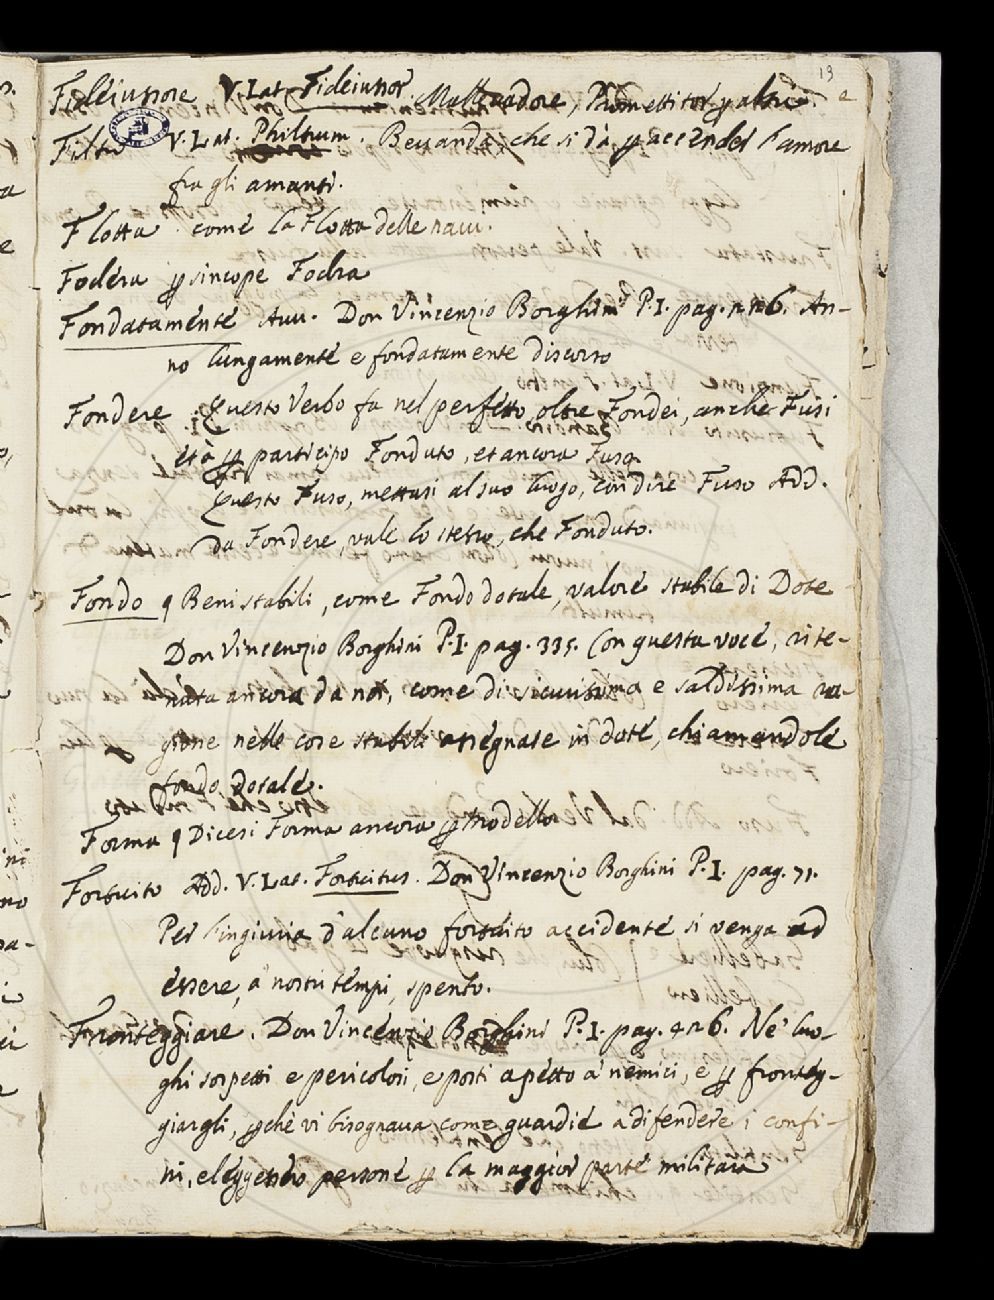 13
Fideiussore V. Lat. Fideiussor. Mallevadore, Promettitor ꝑ altri.
Filtro V. Lat. Philtrum. Bevanda, che si dà ꝑ accender l'amore
fra gli amanti.
Flotta come la Flotta delle navi.
Fodera ꝑ sincope Fodra
Fondatamente Avv. Don Vincenzio Borghini P. I. pag. 126. An-
no lungamente e fondatamente discorso
Fondere Questo Verbo fa nel perfetto, oltre Fondei, anche Fusi
età ꝑ participo Fonduto, et ancora Fuso.
Questo Fuso, mettasi al suo luogo, con dire Fuso Add.
da Fondere, vale lo stesso, che Fonduto.
Fondo ꝗ Beni stabili, come Fondo dotale, valore stabile di Dote
Don Vincenzio Borghini P. I. pag. 335. Con questa voce, rite-
nuta ancora da noi, come di sicurissima e saldissima ra-
gione nelle cose stabili assegnate in dote, chiamandole
fondo dotale.
Forma ꝗ Dicesi Forma ancora ꝑ Modello
Fortuito Add. V. Lat. Fortuitus. Don Vincenzio Borghini P. I. pag. 71.
Per l'ingiuria d'alcuno fortuito accidente si venga ad
essere, a' nostri tempi, spento.
Fronteggiare. Don Vincenzio Borghini P. I. pag. 426. Ne' luo-
ghi sospetti e pericolosi, e posti apetto a' nemici, e ꝑ fronteg-
giargli, ꝑchè vi bisognava come guardie a difendere i confi-
ni, eleggendo persone ꝑ la maggior parte militare